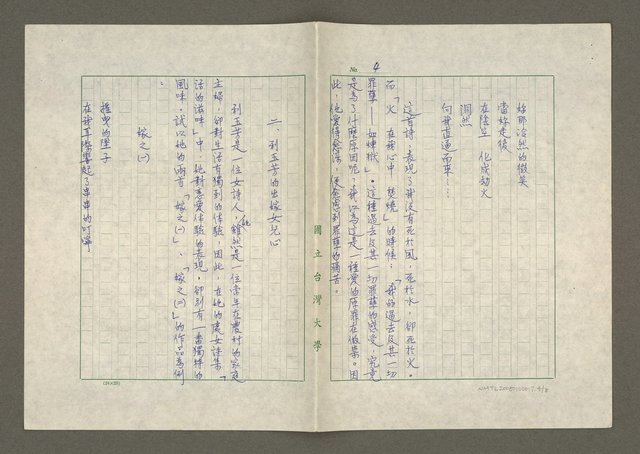 No. 4
妳那冷然的微笑
當妳走後
在陰空 化成劫火
洞然
向我直逼而來……
這首詩，表現了我沒有死於風，死於水，卻死於火。
而「火 在我心中 燃燒」的時候；「我的過去及其一切
罪孽——如煉獄」。這種過去及其一切罪孽的感受，究竟
是為了什麼原因呢，我以為這是一種愛的原罪在做祟。因
此，他愛得愈深，便愈感到罪孽的痛苦。
國立台灣大學
二、利玉芳的出嫁女兒心
利玉芳是一位女詩人，她雖然是一位常年在農村的家庭
主婦，卻對生活有獨到的体驗，因此，在她的處女詩集「
活的滋味」中，她對戀愛体驗的表現，卻別有一番獨特的
風味。試以她的兩首「嫁之㈠」、「嫁之㈡」的作品為例
：
嫁之㈠
搖曳的墜子
在我耳際響起了串串的叮嚀
(24×25)